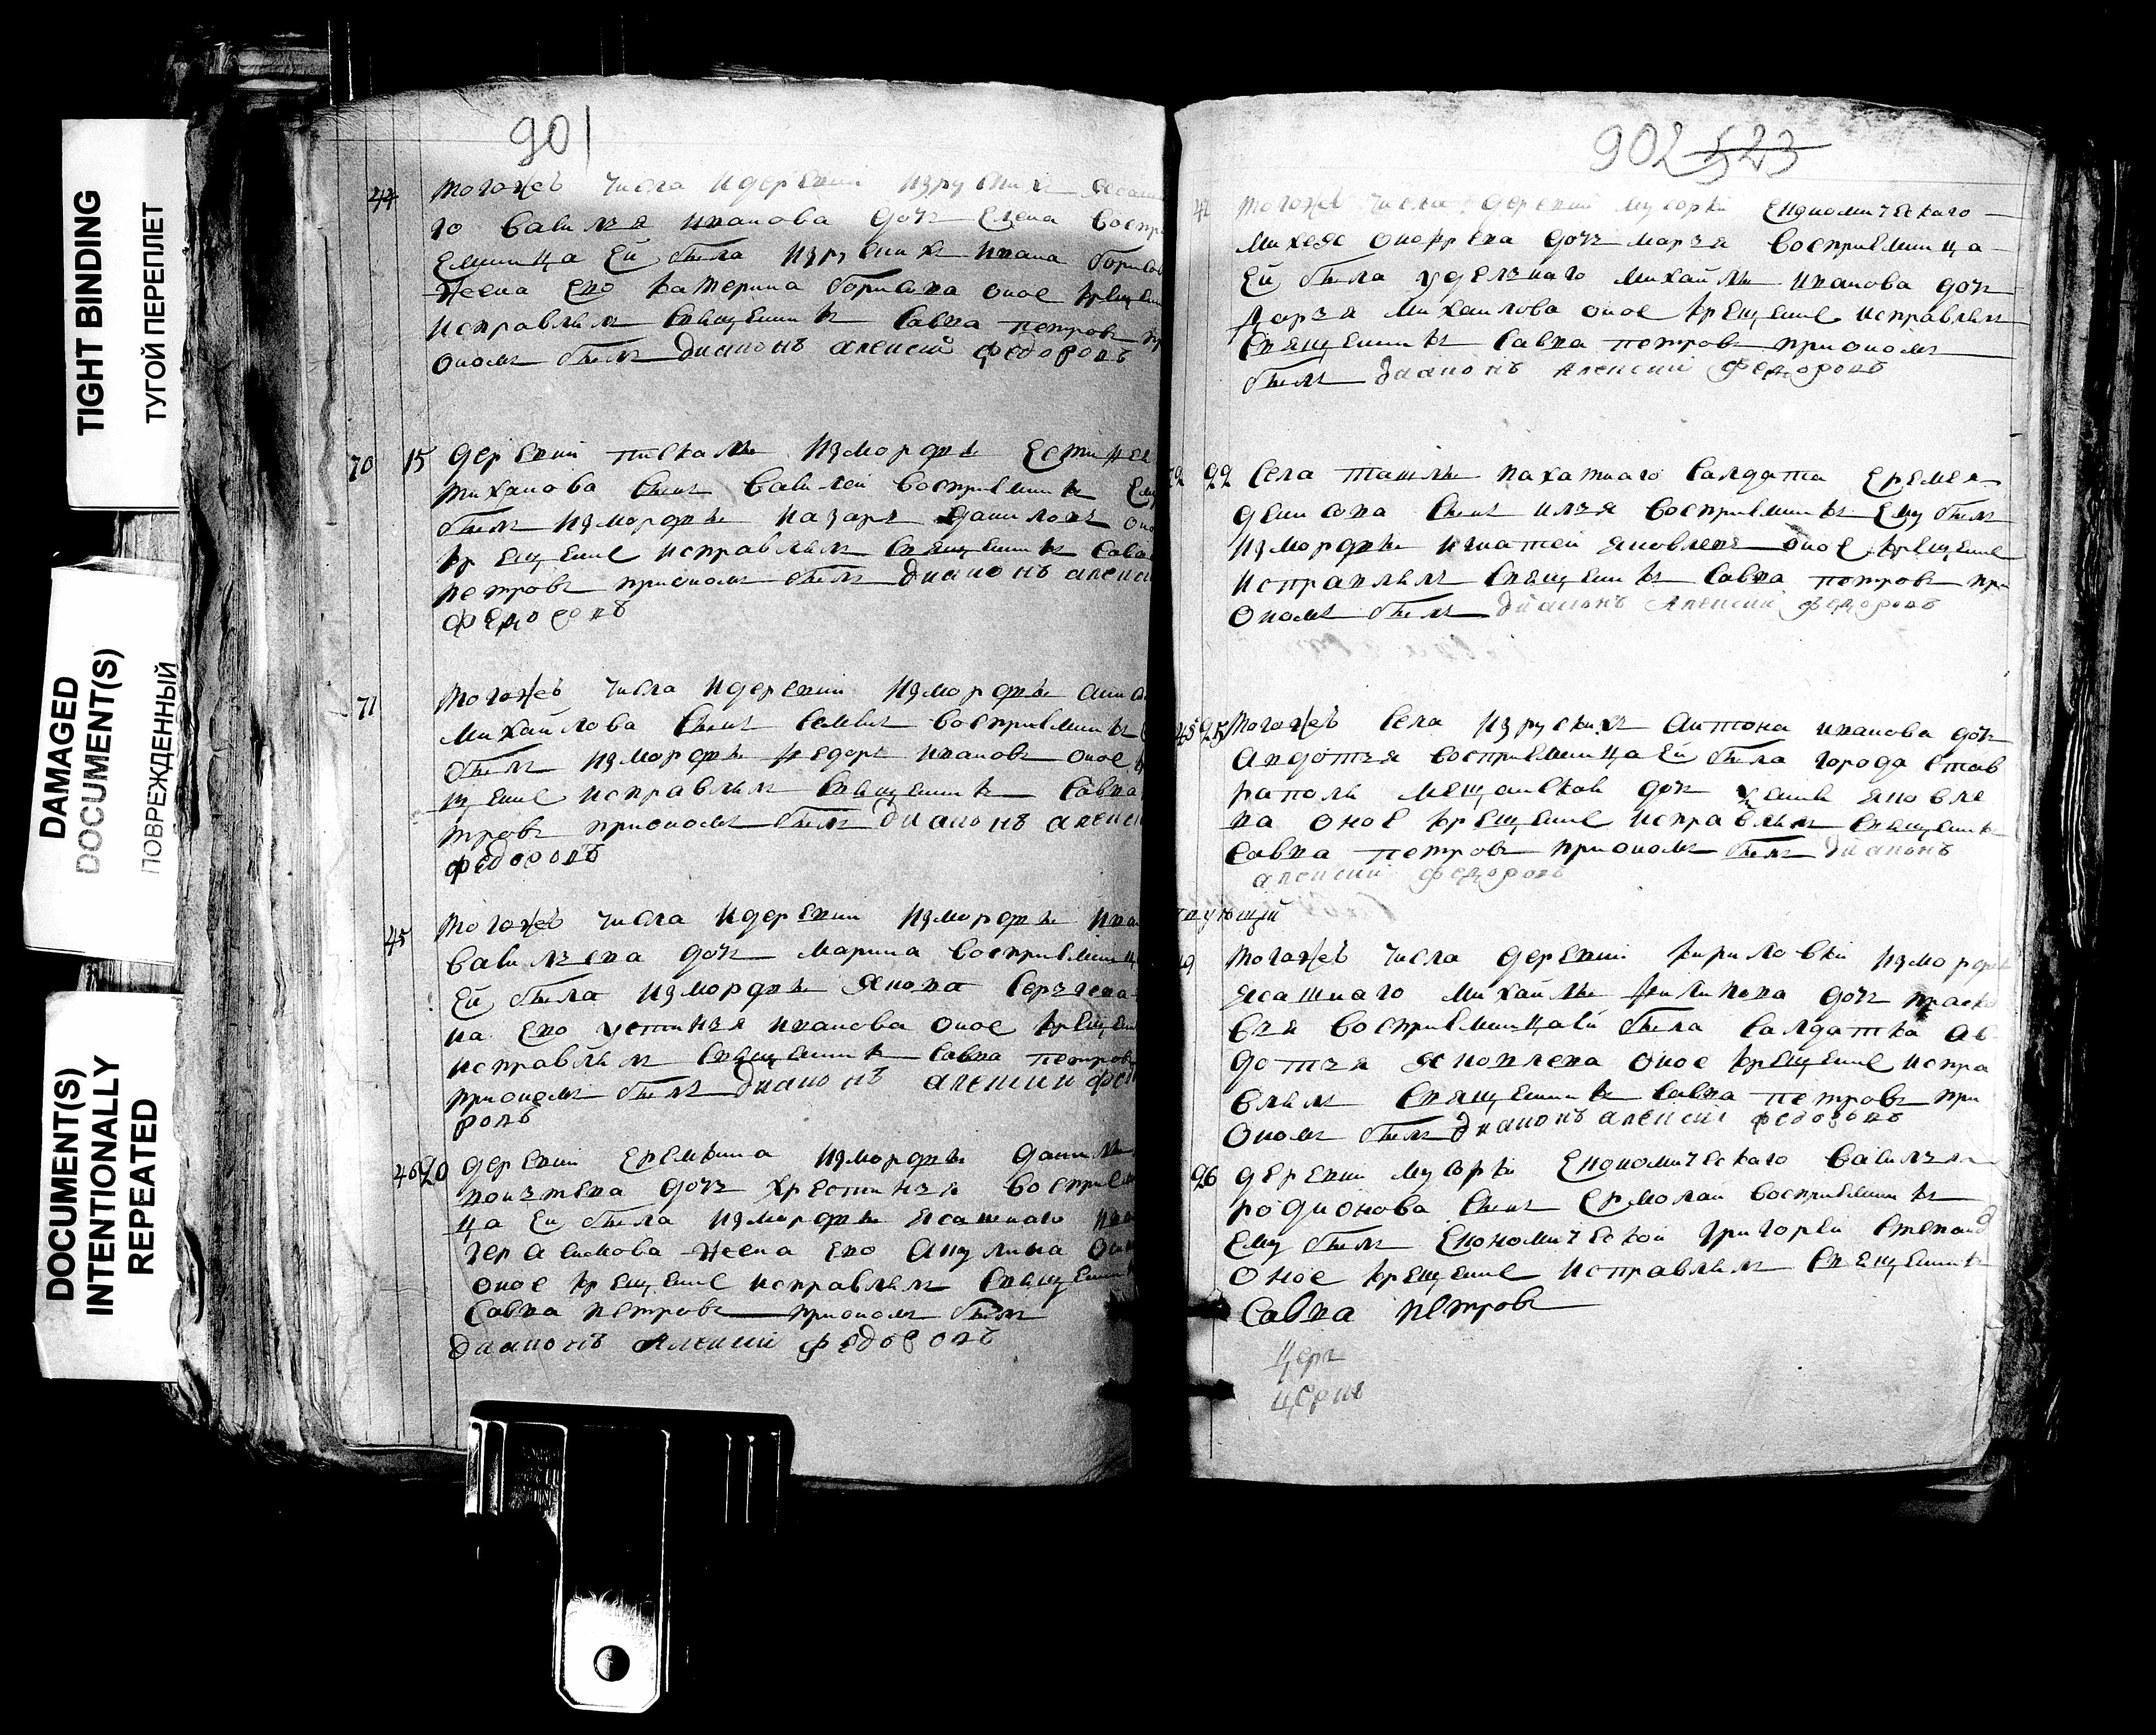 TIGHT BINDING
ТУГОЙ ПЕРЕПЛЕТ
DAMAGED
DOCUMENT(S)
ПОВРЕЖДЕННЫЙ
DOCUMENT(S)
INTENTIONALLY
REPEATED
901
44 тогожъ числа идеревни изруских ясаш
го василья иванова дочь елена воспри
емница ей была изруских ивана борисов
жена ево катерина борисова оное креще
исправлял священник савва петров пр
оном был диаконъ алексей федоровъ
70 15 деревни пискалы измордвы
тиханова сын василей восприемник ему
был измордвы назаръ данилов оно
крещение исправлял священник савва
петров прионом был диаконъ алексе
федоровъ
71 тогожъ числа идеревни измордвы
михайлова сын семен восприемник
был измордвы федоръ иванов оное к
щение исправлял священник савва
тров прионом был диаконъ алексе
федоровъ
45 тогожъ числа идеревни измордвы ива
васильева дочь марина восприемниц
ей была измордвы якова сергеева
на ево устинья иванова оное креще
исправлял священник савва петров
прионом был диаконъ алексей федо
ровъ
46 20 деревни еремкина измордвы данилы
дочь христинья восприем
ца ей была измордвы ясашнаго ива
герасимова жена ево акулина
оное крещение исправлял священник
савва петров прионом был
диаконъ алексей федоровъ
902 523
47 тогожъ числа деревни мусорки економическаго
михея онофрева дочь марья восприемница
ей была удельнаго михайлы иванова дочь
дарья михаилова оное крещение исправлял
священник савва петров прионом
был диаконъ алексей федоровъ
72 22 села ташлы пахатнаго салдата еремея
денисова сын илья восприемник ему был
измордвы игнатей яковлев оное крещение
исправлял священник савва петров при
оном был диаконъ алексей федоровъ
48 25 тогожъ села изруских антона иванова дочь
авдотья восприемница ей была города став
рополя мещанской дочь яковле
ва оное крещение исправлял священик
савва петров прионом был диаконъ
алексей федоровъ
49 тогожъ числа деревни кириловки измордвы
ясашнаго михайлы филипова дочь праско
вья восприемницаей была салдатка ав
дотья яковлева оное крещение испра
влял священник савва петров при
оном был диаконъ алексей федоровъ
26 деревни мусорки економическаго василья
родионова сын ермолай восприемник
ему был економической григорей степанов
оное крещение исправлял священник
савва петров